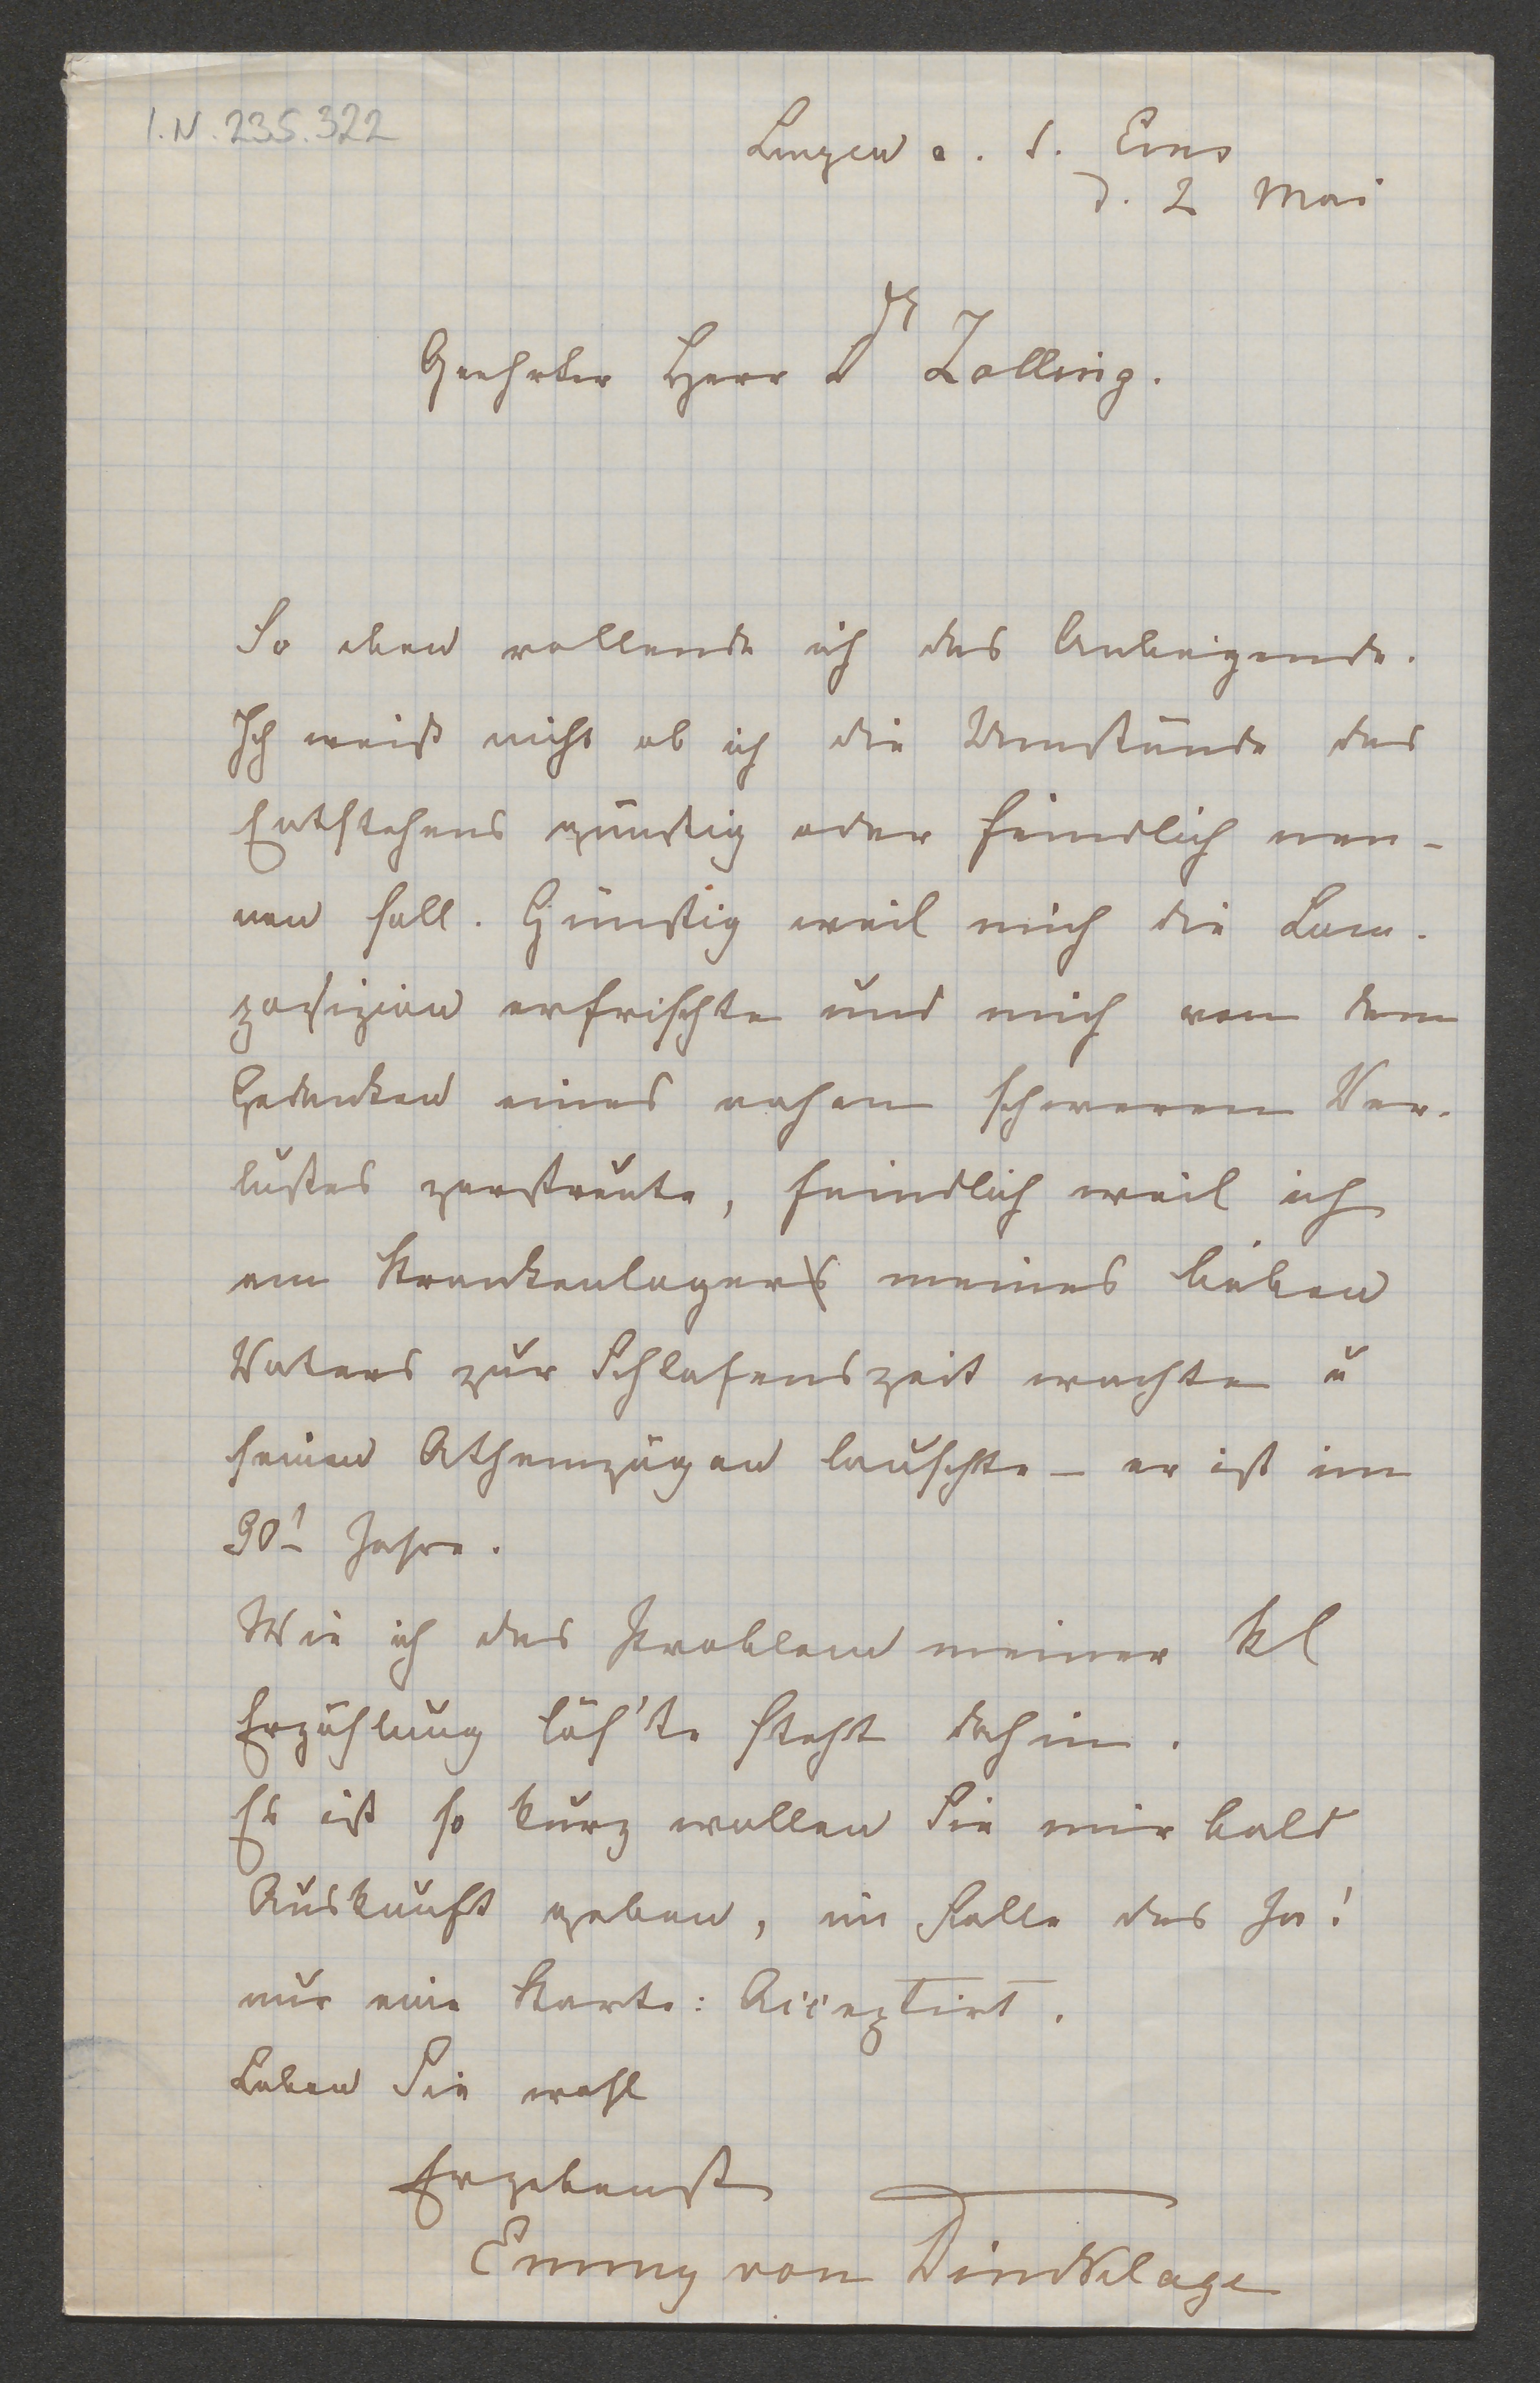 I.N. 235.322
Lingen a. d. Ems
d. 2 Mai
Geehrter Herr Dr Zolling.
So eben vollende ich das Anbeigende.
Ich weiß nicht ob ich die Umstände des
Entstehens günstig oder feindlich nen-
nen soll. Günstig weil mich die Com-
posizion erfrischte und mich von dem
Gedanken eines nahen schweren Ver-
lustes zerstreute, feindlich weil ich
am Krankenlager meines lieben
Vaters zur Schlafenszeit wachte u
seinen Athemzügen lauschte – er ist im
90t Jahre.
Wie ich das Problem meiner kl
Erzählung lös'te steht dahin.
Es ist so kurz wollen Sie mir bald
Auskunft geben, im Falle des Ja!
nur eine Karte: Acceptirt.
Leben Sie wohl
Ergebenst
Emmy von Dincklage